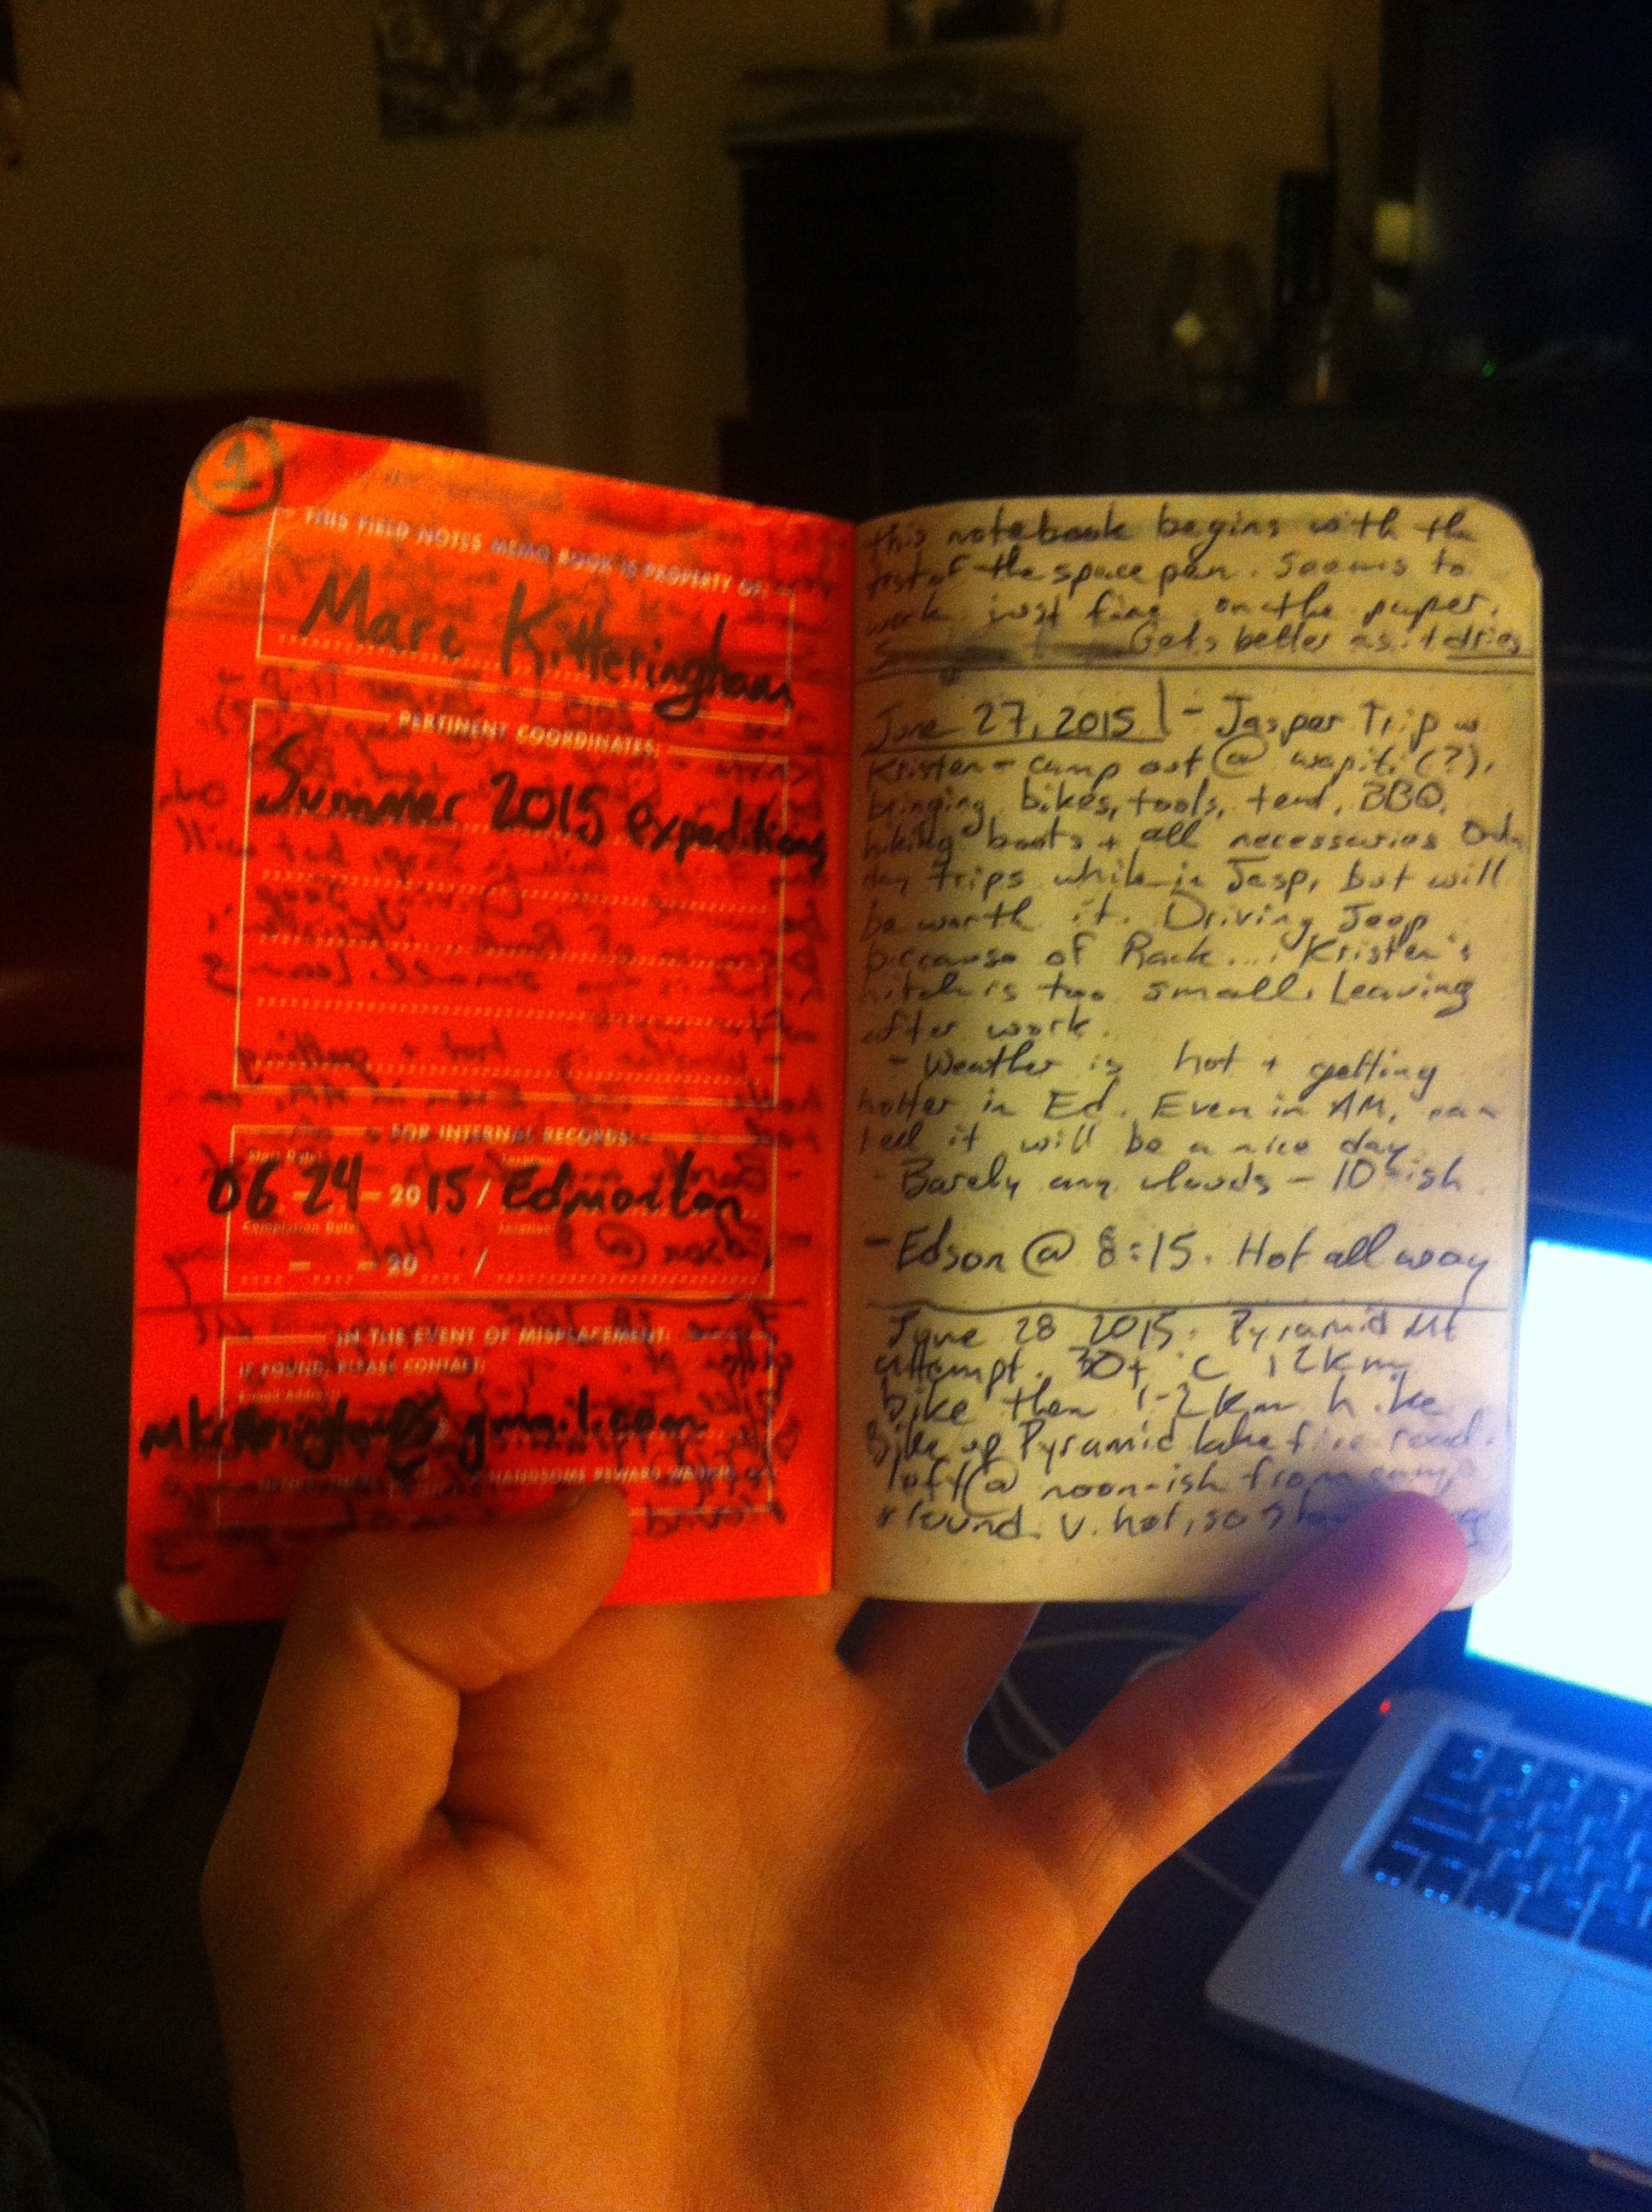 1
THIS FIELD NOTES MEMO BOOK IS PROPERTY OF:
Marc Kitteringham
PERTINENT COORDINATES:
Summer 2015 expeditions
FOR INTERNAL RECORDS:
Start Date: Location:
06 - 24 - 2015 / Edmonton
Completion Date: Location:
- - 20 /
IN THE EVENT OF MISPLACEMENT:
IF FOUND, PLEASE CONTACT:
Email Address:
gmail.com
HANDSOME REWARD
this notebook begins with the
test of the space pen. Seems to
work just fine on the paper.
Gets better as it dries
June 27, 2015 - Jasper Trip w
Kristen - camp out @ wapiti (?).
bringing bikes, tools, tent, BBQ,
hiking boots + all necessaries Only
day trips while in Jasp, but will
be worth it. Driving Jeep
because of Rack... Kristen's
hitch is too small. Leaving
after work.
- Weather is hot + getting
hotter in Ed. Even in AM, can
tell it will be a nice day.
- Barely any clouds - 10-ish
- Edson @ 8:15. Hot all way
June 28 2015. Pyramid Mt
attempt. 30+ °C 12km
bike then 1-2km hike
Bike up Pyramid lake fire road.
left @ noon-ish from camp
ground. v. hot, so